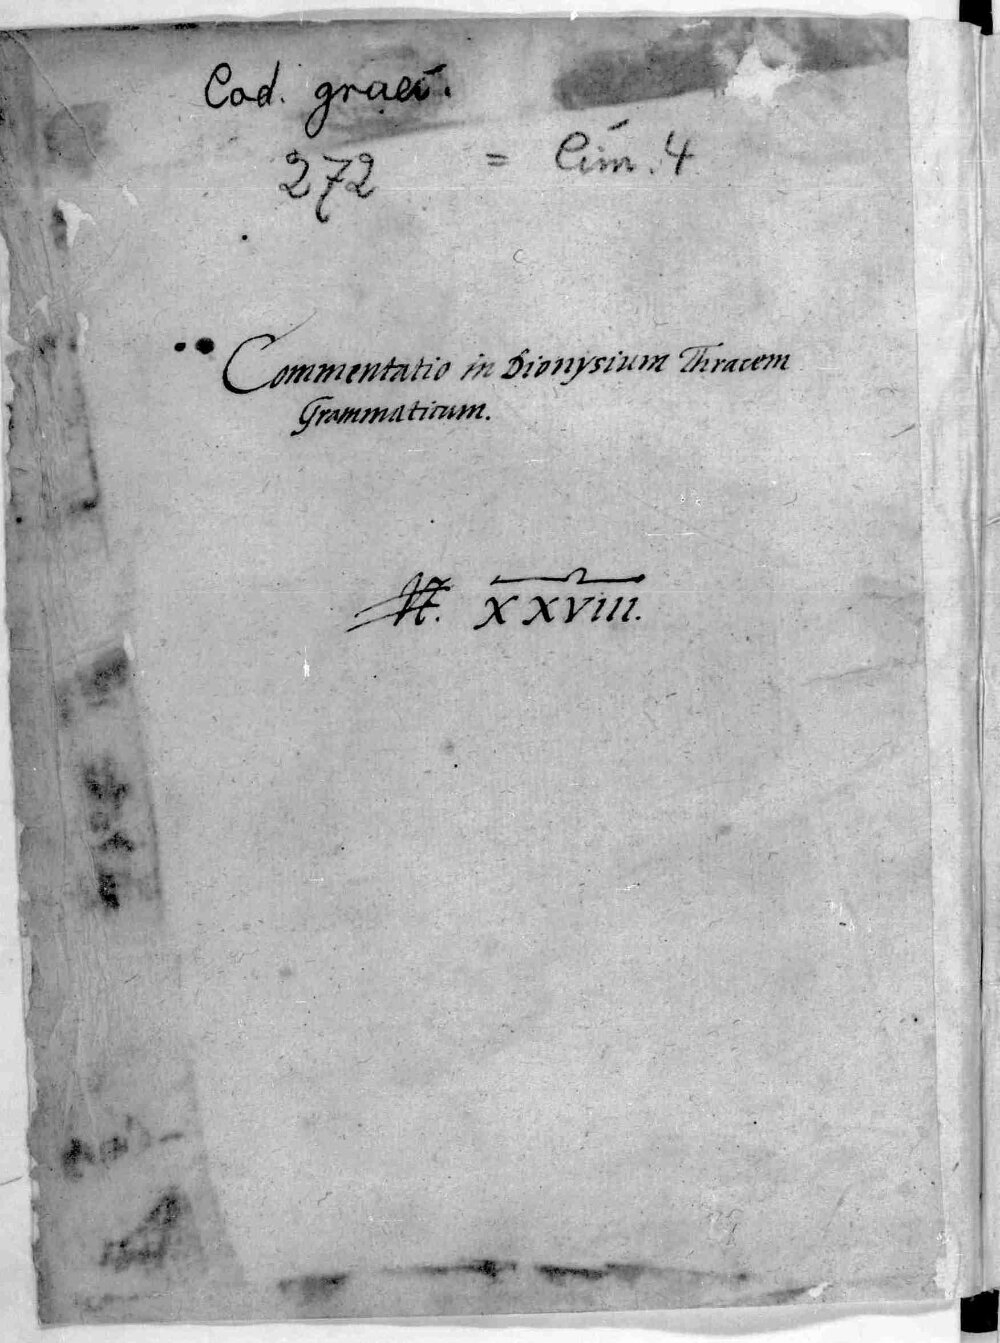 Cod. graec.
272 = Cim. 4
Commentatio in Dionysium Thracem
Grammaticum.
XXVIII.